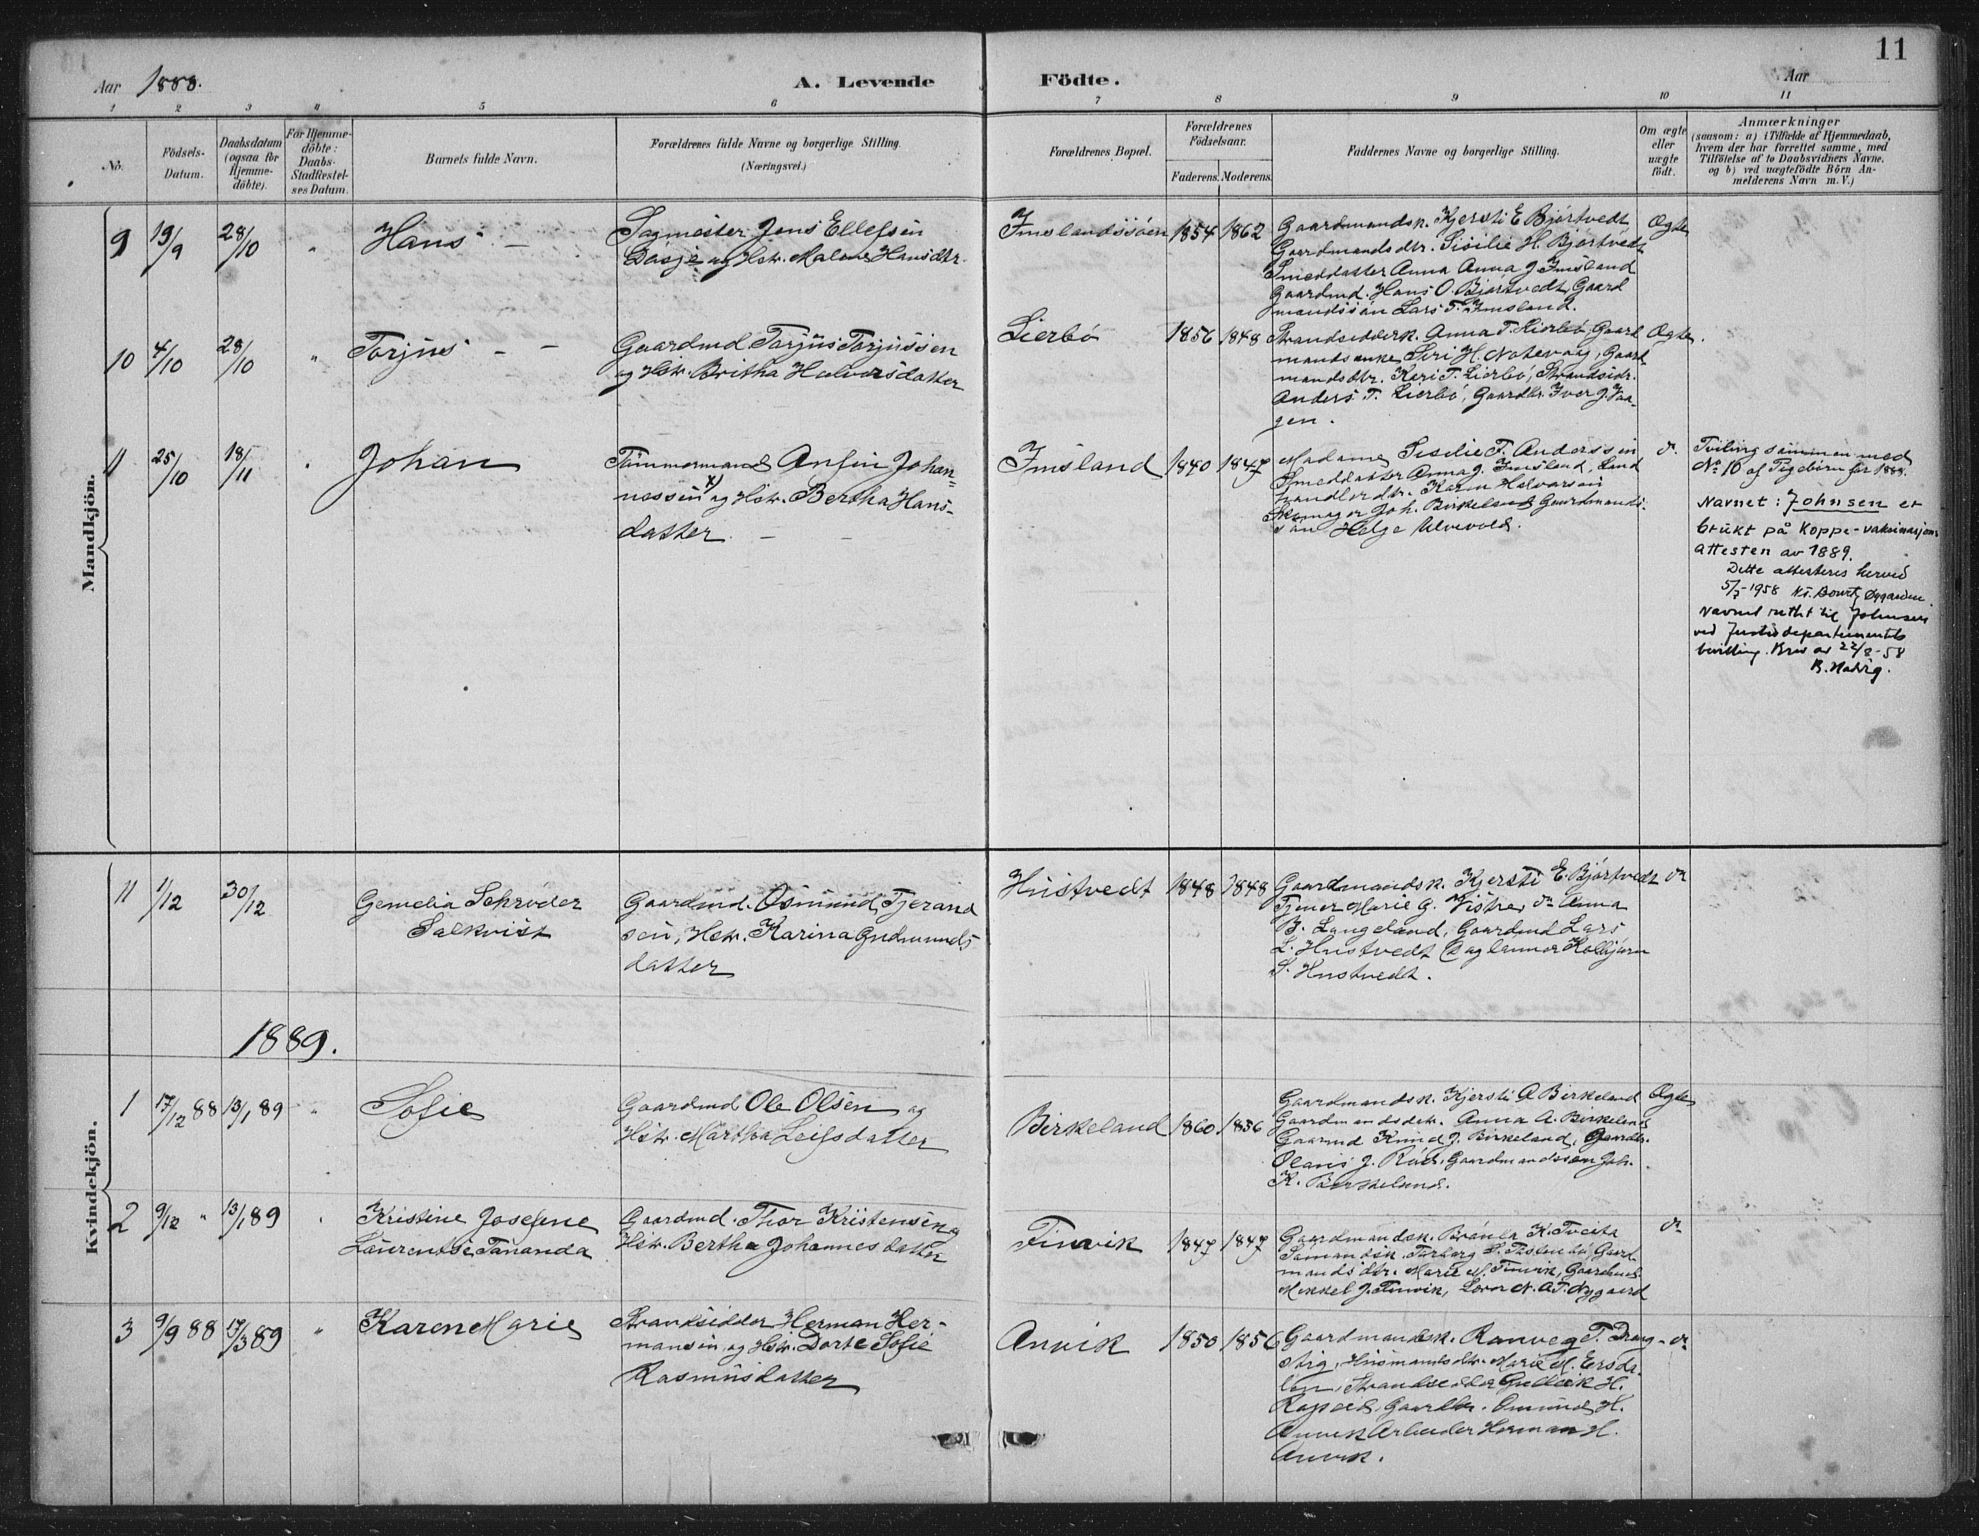 11
Aar 1888.
A. Levende Födte.
Aar
1 2 3 4 5 6 7 8 9 10 11
No.
Födsels-
Datum.
Daabsdatum
(ogsaa for
Hjemme-
döbte).
For Hjemme-
döbte:
Daabs-
Stadfæstel-
ses Datum.
Barnets fulde Navn.
Forældrenes fulde Navne og borgerlige Stilling.
(Næringsvei.)
Forældrenes Bopæl.
Forældrenes
Födselsaar.
Faderens. Moderens.
Faddernes Navne og borgerlige Stilling.
Om ægte
eller
uægte
födt.
Anmærkninger
(saasom: a) i Tilfælde af Hjemmedaab,
hvem der har forrettet samme, med
Tilföielse af to Daabsvidners Navne,
og b) ved uægtefödte Börn An-
melderens Navn m. V.)
Mandkjön.
9 19/9 28/10 " Hans
Sagmester Jens Ellefsen
og Hstr. Malene Hansdtr.
Imslandssöen 1854 1862
Gaardmandsk. Kjersti E Bjørtvedt
Gaardmandsdtr. Sisilie H. Bjørtvedt
Smeddatter Anna Anna J Imsland
Gaardmd. Hans O. Bjørtvedt, Gaard
mandssön Lars T. Imsland.
Ægte
10 4/10 28/10 " Torjus
Gaardmd Torjus Torjussen
og Hstr. Britha Halvorsdatter
Lierbö 1856 1848
Strandsidderk. Anna T. Lierbö, Gaard
mandsenke Siri H. Notevaag, Gaard
mandsdtr. Kari T. Lierbö, Strandsidr.
Anders T. Lierbö, Gaardbr. Iver J. Vaa-
gen.
Ægte.
11 25/10 18/11 " Johan
Tömmermand Anfin Johan-
nessen x) og Hstr. Bertha Hans-
datter
Imsland 1840 1847
Madame Sisilie T. Anderssen
Smeddatter Anna J. Imsland, Land
handlerdtr. Karen Halvorsen
Skomager Joh. Birkeland Gaardmands-
sön Helge Ulvevold.
do.
Tvilling sammen med
No 10 af Pigebörn for 1888.
Navnet: Johnsen er
brukt på Koppe-vaksinasjons
attesten av 1889.
Dette attesteres herved
5/-1958
Navnet rettet til Johnsen
ved Justisdepartementets
bevilling. Brev av 22/-58
Kvindekjön.
11 1/12 30/12
Gemelia Schröder
Salkvist
Gaardmd. Osmund Tjerand
sen, Hstr. Karina Gudmunds
datter
Hustvedt 1848 1848
Gaardmandsk. Kjersti E. Bjørtvedt
Tjener Marie G. Vistre, do Anna
B. Langeland, Gaardmd Lars
L. Hustvedt Daglönner Kolbjørn
S. Hustvedt.
do
1889.
1 17/12 88 13/1 89 " Sofie
Gaardmd Ole Olsen og
Hstr. Martha Leifsdatter
Birkeland 1860 1856
Gaardmandsk. Kjersti A Birkeland
Gaardmandsdtr. Anna A. Birkeland
Gaarmd Knud J. Birkeland, Gaardbr.
Olaus J. Röd, Gaardmandssön Joh.
K. Birkeland.
Ægte
2 9/12 " 13/1 89
Kristine Josefine
Laurentse Tananda
Gaardmd. Thor Kristensen og
Hstr. Bertha Johannesdatter
Finvik 1847 1847
Gaardmandsk. K. Tveita
Sömandsk. S. Gaard
mandsdtr. Marie M. Finvik, Gaardmd.
Mikkel J. Finvik, A. T. Nygaard
do
3 9/9 88 17/3 89 " Karen Marie
Strandsidder Herman Her-
mansen og Hstr. Dorte Sofie
Rasmusdatter
Anvik 1850 1856
Gaardmandsk. Ranveg T. Drang-
stig, Husmandsdtr. Marie M. Ersda-
len, Strandsidder Gulleik H.
Gaardbr. Omund H.
Anvik Arbeider Herman H.
Anvik.
do